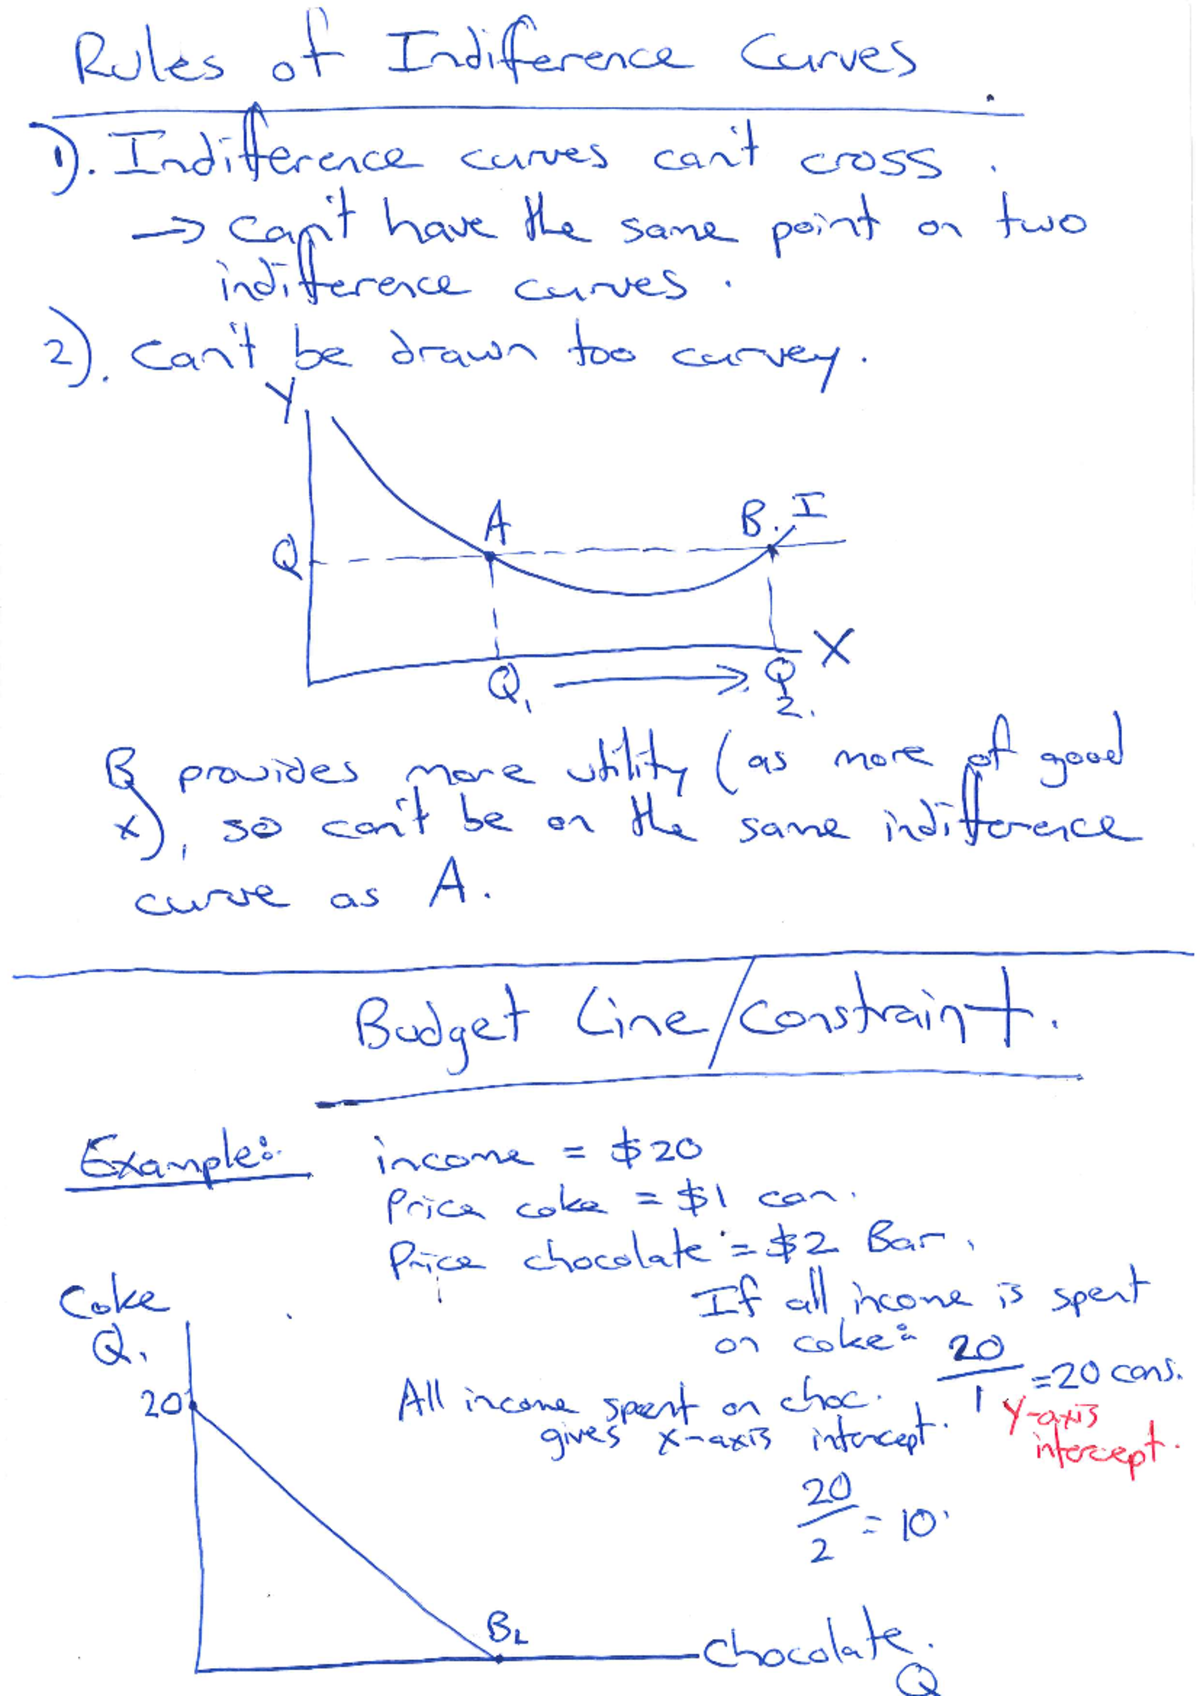 Rules of Indifference Curves
1). Indifference curves can't cross.
→ can't have the same point on two
indifference curves.
2). Can't be drawn too curvey.
Y
A
B. I
Q
X
Q1 → Q2.
B provides more utility (as more of good
x), so can't be on the same indifference
curve as A.
Budget Line/Constraint.
Example: income = $20
Price coke = $1 can.
Price chocolate = $2 Bar.
If all income is spent
on coke: 20/1 = 20 cans.
Y-axis
intercept.
All income spent on choc.
gives x-axis intercept.
20/2 = 10.
Coke
Q.
20
BL
Chocolate.
Q